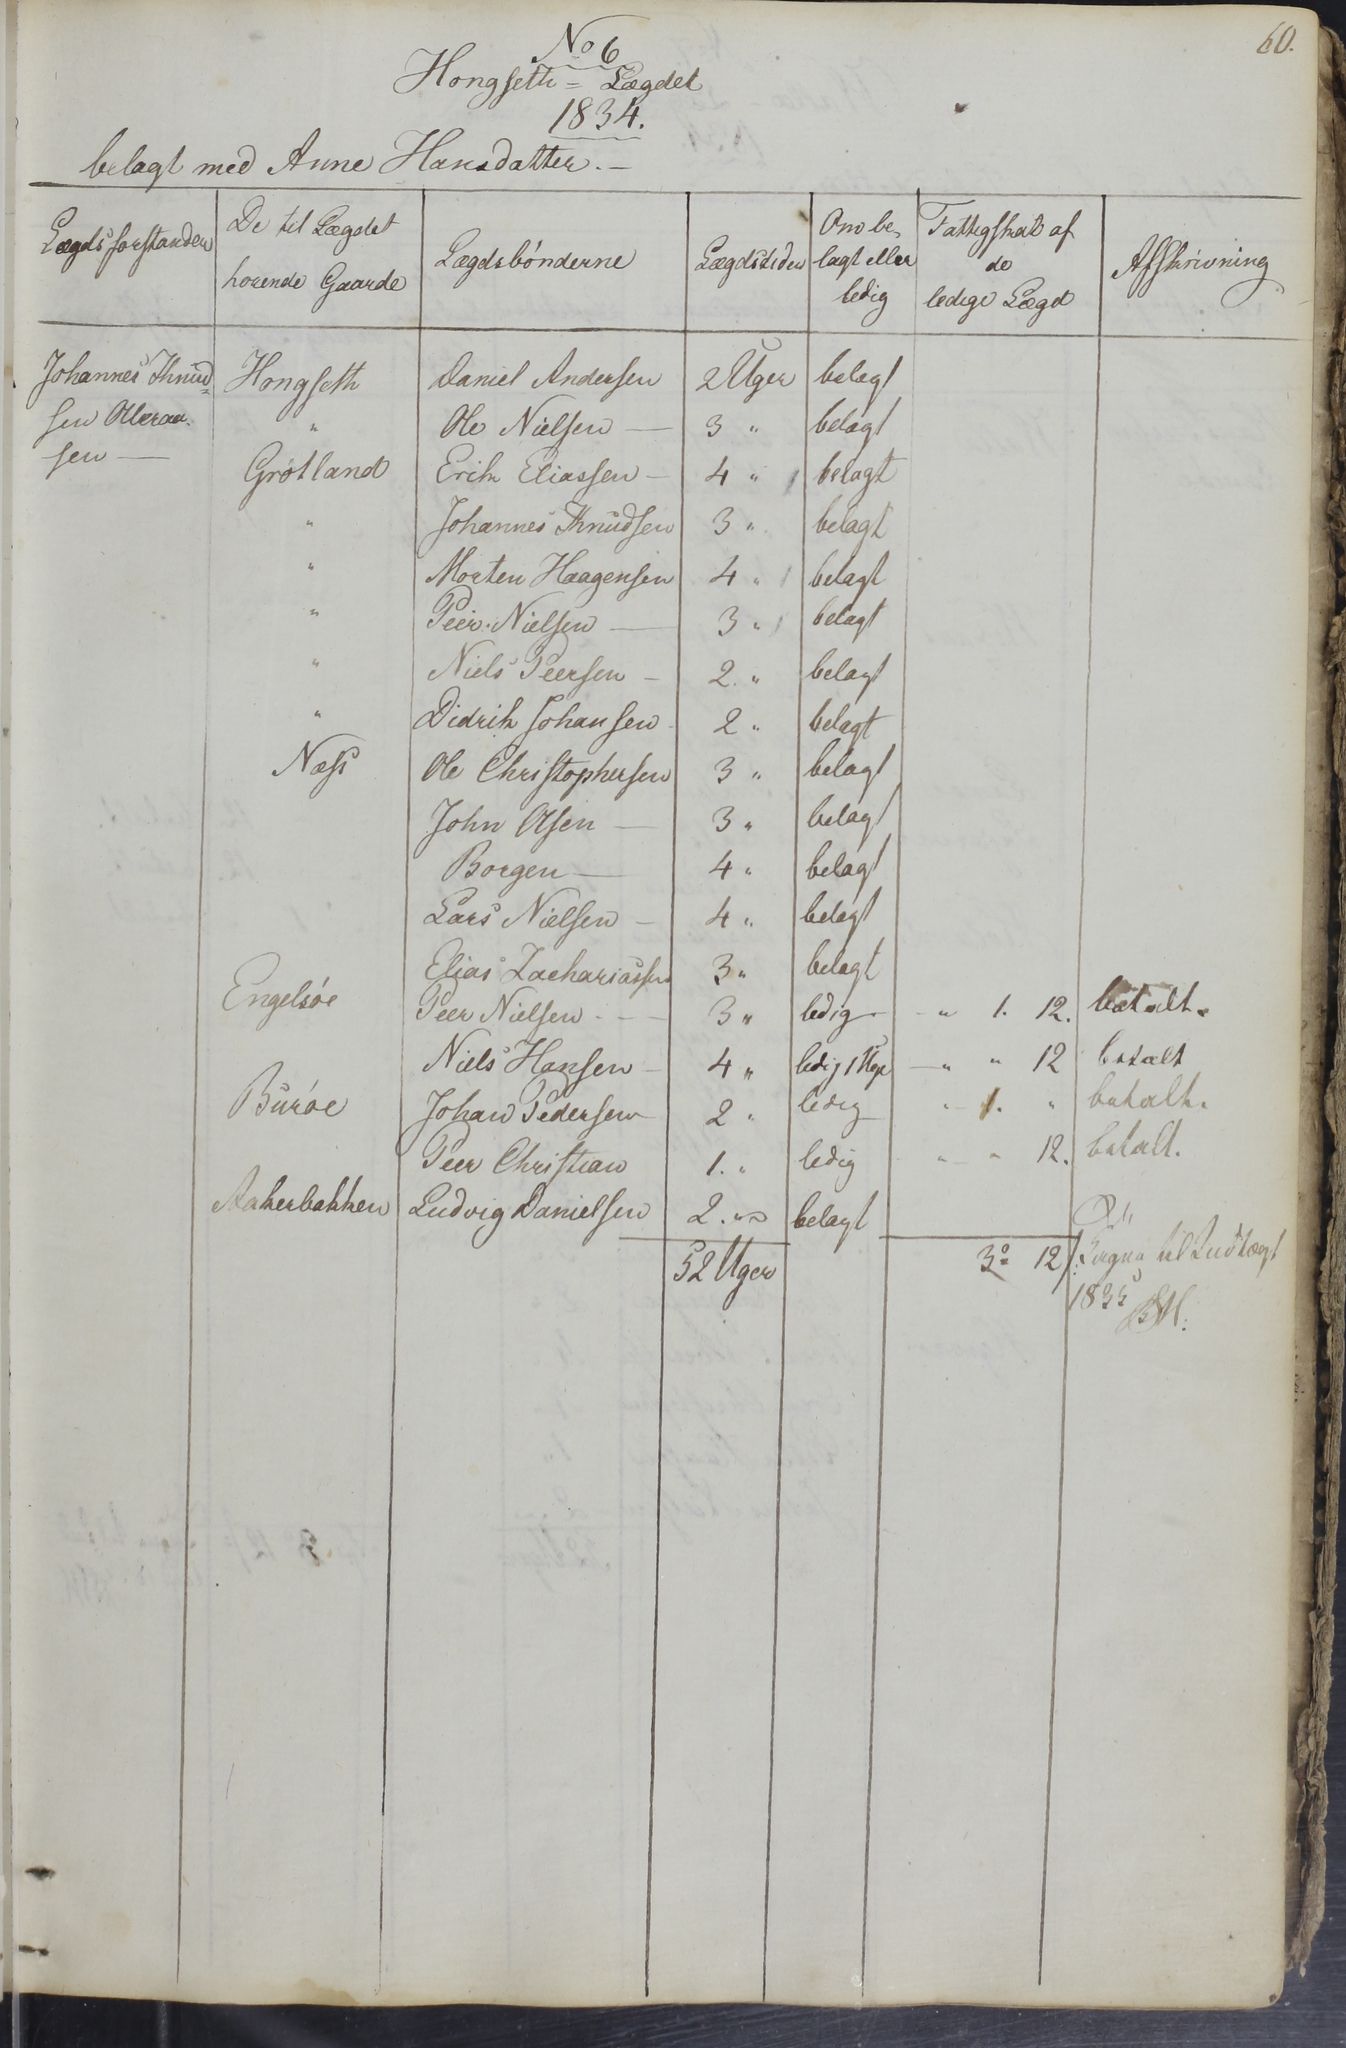 60.
No 6
Hongseth = Lægdet
1834.
belagt med Anne Hansdatter. —
Lægdsforstanderen | De til Lægdet horende Gaarde | Lægdsbønderne | Lægdstiden | Om belagt eller ledig | Fattigskat af de ledige Lægd | Afskrivning
Johannes Knud= | Hongseth | Daniel Andersen | 2 Uger | belagt
sen | " | Ole Nielsen — | 3 " | belagt
sen — | Grøtland | Erik Eliassen — | 4 " | belagt
" | Johannes Knudsen | 3 " | belagt
" | Morten Haagensen | 4 " | belagt
" | Peer Nielsen — | 3 " | belagt
" | Niels Peersen — | 2. " | belagt
" | Didrik Johansen | 2 " | belagt
Næss | Ole Christophersen | 3 " | belagt
John Olsen — | 3 " | belagt
Borgen — | 4 " | belagt
Lars Nielsen — | 4 " | belagt
Elias Zachariassen | 3 " | belagt
Engelsøe | Peer Nielsen - - - | 3 " | ledig | " 1. 12. | betalt.
Niels Hansen — | 4 " | ledig 1 Uge | " " 12 | betalt
Burøe | Johan Pedersen | 2 " | ledig | " 1. " | betalt.
Peer Christian | 1. " | ledig | " " 12. | betalt.
Aakerbakken | Ludvig Danielsen | 2. " | belagt
52 Uger | 3 " 12 | til Indtægt
1835